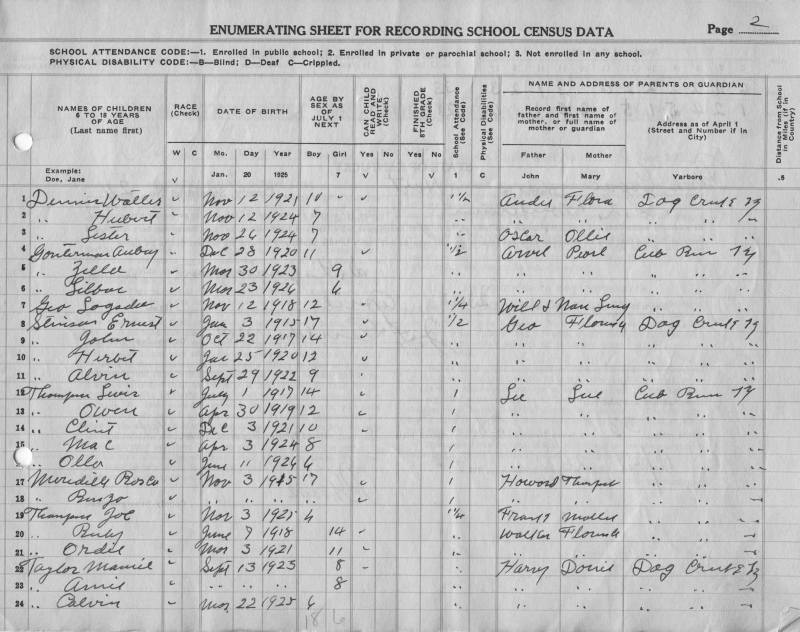 ENUMERATING SHEET FOR RECORDING SCHOOL CENSUS DATA
Page 2
SCHOOL ATTENDANCE CODE:—1. Enrolled in public school; 2. Enrolled in private or parochial school; 3. Not enrolled in any school.
PHYSICAL DISABILITY CODE:—B—Blind; D—Deaf C—Crippled.
NAMES OF CHILDREN 6 TO 18 YEARS OF AGE (Last name first)
RACE (Check)
DATE OF BIRTH
AGE BY SEX AS OF JULY 1 NEXT
CAN CHILD READ AND WRITE (Check)
FINISHED 8TH GRADE (Check)
School Attendance (See Code)
Physical Disabilities (See Code)
NAME AND ADDRESS OF PARENTS OR GUARDIAN
Record first name of father and first name of mother, or full name of mother or guardian
Address as of April 1 (Street and Number if in City)
Distance from School in Miles (if in Country)
W C Mo. Day Year Boy Girl Yes No Yes No Father Mother
Example: Doe, Jane V Jan. 20 1925 7 V V 1 C John Mary Yarboro .5
1 Dennis Walter ✓ Nov 12 1921 10 1 1/2 Andie Flora Dog Creek Ky
2 " Hubert ✓ Nov 12 1924 7 " " " "
3 " Lester ✓ Nov 26 1924 7 Oscar Ollie " "
4 Gonterman Aubrey ✓ Dec 28 1920 11 ✓ 1 1/2 Arvil Pearl Cub Run Ky
5 " ✓ Mar 30 1923 9 " " " "
6 " ✓ Mar 23 1926 6 " " " "
7 Geo ✓ Nov 12 1918 12 ✓ 1 1/4 Will & " "
8 Stinson Ernest ✓ Jan 3 1915 17 ✓ 1/2 Geo Dog Creek Ky
9 " John ✓ Oct 22 1917 14 ✓ " " " "
10 " Herbert ✓ Jan 25 1920 12 ✓ " " " "
11 " Alvin ✓ Sept 29 1922 9 " " " "
12 Thompson ✓ July 1 1917 14 ✓ 1 Lee Sue Cub Run Ky
13 " Owen ✓ Apr 30 1919 12 ✓ 1 " " " "
14 " Clint ✓ Dec 3 1921 10 ✓ 1 " " " "
15 " Mac ✓ Apr 3 1924 8 1 " " " "
" Olla ✓ June 11 1926 6 1 " " " "
17 Meredith Rosco ✓ Nov 3 1915 17 ✓ 1 Howard " "
18 " ✓ " " " " ✓ 1 " " " "
19 Thompson Joe ✓ Mar 3 1925 6 1 1/4 Frank Mollie " "
20 " Ruby ✓ June 7 1918 14 ✓ Walter " "
21 " Ordie ✓ Mar 3 1921 11 ✓ " " " "
22 Taylor ✓ Sept 13 1923 8 Harry Dorris Dog Creek Ky
23 " ✓ " " " 8 " " " "
24 " Calvin ✓ Mar 22 1925 6 " " " "
18 6